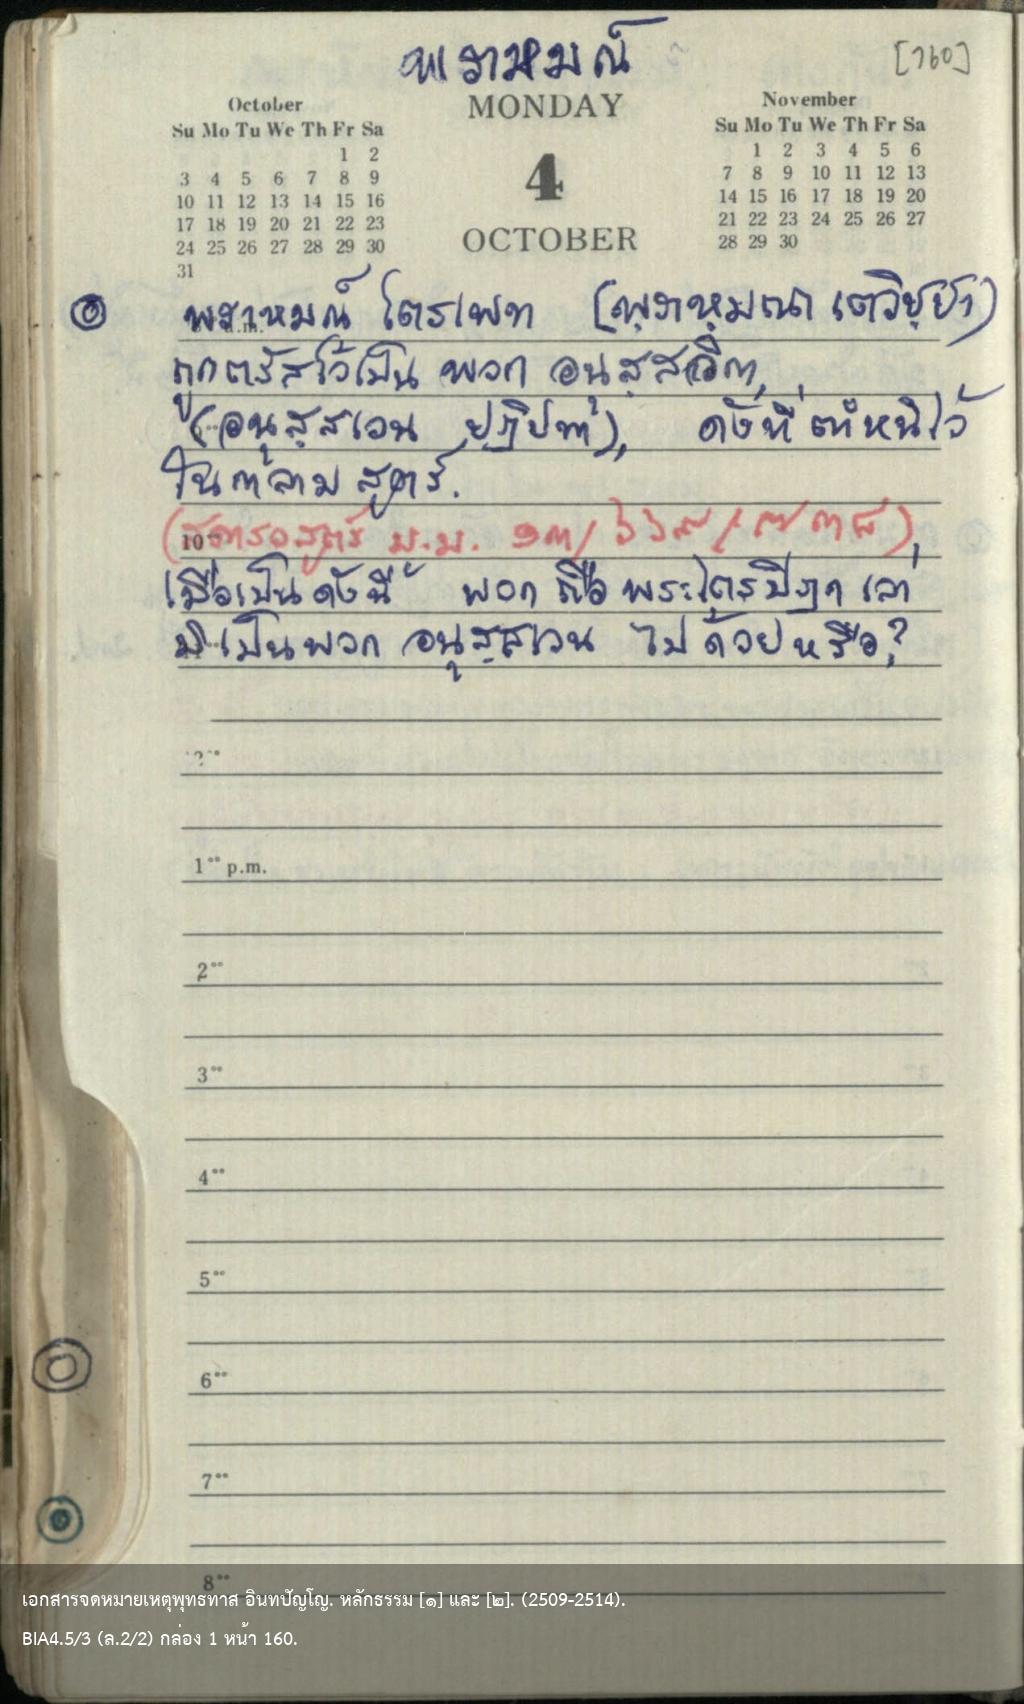 พราหมณ์
[760]
October
Su Mo Tu We Th Fr Sa
1 2
3 4 5 6 7 8 9
10 11 12 13 14 15 16
17 18 19 20 21 22 23
24 25 26 27 28 29 30
31
MONDAY
4
OCTOBER
November
Su Mo Tu We Th Fr Sa
1 2 3 4 5 6
7 8 9 10 11 12 13
14 15 16 17 18 19 20
21 22 23 24 25 26 27
28 29 30
พราหมณ์ ไตรเพท (พฺราหฺมณา เตวิชฺชา)
ถูกตรัสไว้เป็น พวก อนุสฺสวิกา
(อนุสฺสเวน ปฏิปทา), ดังที่ตำหนิไว้
ในกาลามสูตร.
(สคารวสูตร์ ม.ม. ๑๓/๖๖๙/๗๓๘),
เมื่อเป็นดังนี้ พวก ถือ พระไตรปิฎก เล่า
มิเป็นพวก อนุสฺสเวน ไปด้วยหรือ?
1°° p.m.
2°°
3°°
4°°
5°°
6°°
7°°
8°°
เอกสารจดหมายเหตุพุทธทาส อินทปัญโญ. หลักธรรม [๑] และ [๒]. (2509-2514).
BIA4.5/3 (ล.2/2) กล่อง 1 หน้า 160.